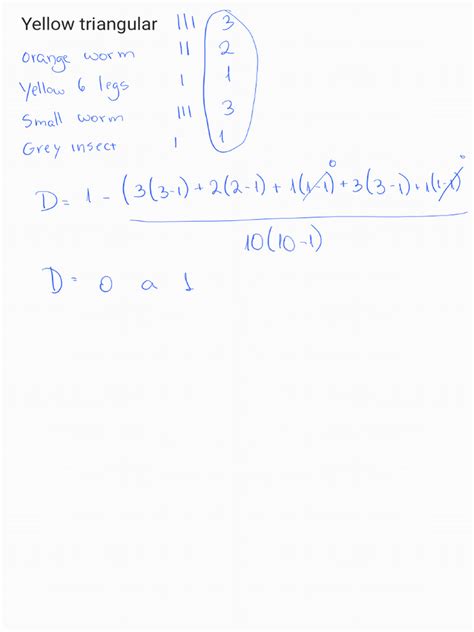 Yellow triangular III 3
orange worm II 2
Yellow 6 legs I 1
Small worm III 3
Grey insect I 1
D = 1 - (3(3-1) + 2(2-1) + 1(1-1)⁰ + 3(3-1) + 1(1-1)⁰
10(10-1)
D = 0 a 1